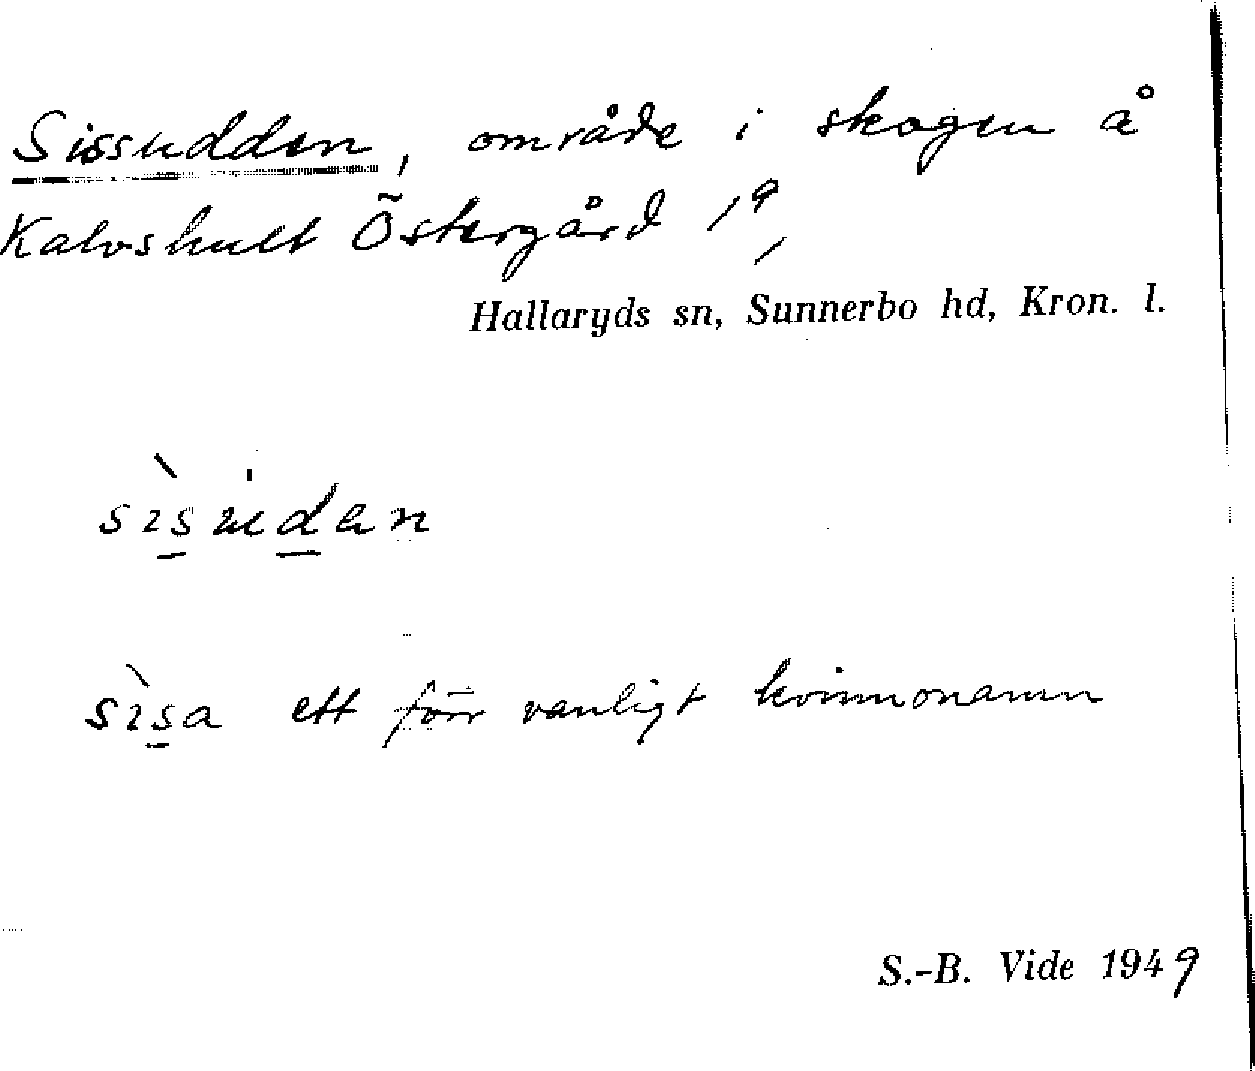 Sissudden, område i skogen å
Kalvshult Östergård 1⁹,
Hallaryds sn, Sunnerbo hd, Kron. l.
sɩ̀su̍dan
sɩ̀sa ett förr vanligt kvinnonamn
S.-B. Vide 1949